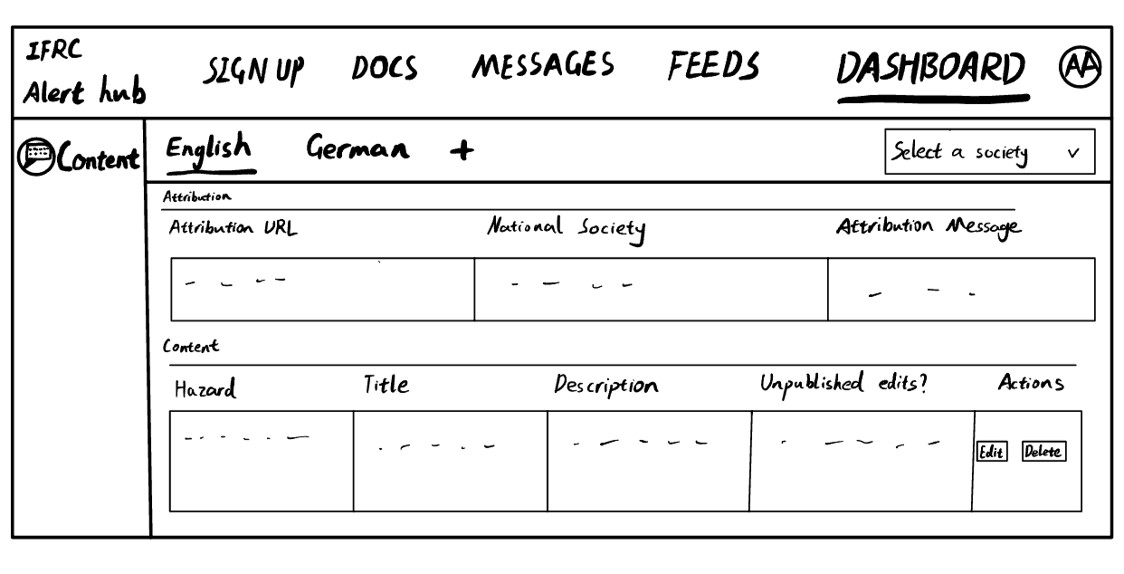 IFRC
Alert hub
SIGN UP DOCS MESSAGES FEEDS DASHBOARD AA
Content
English German + Select a society v
Attribution
Attribution URL National Society Attribution Message
Content
Hazard Title Description Unpublished edits? Actions
Edit Delete